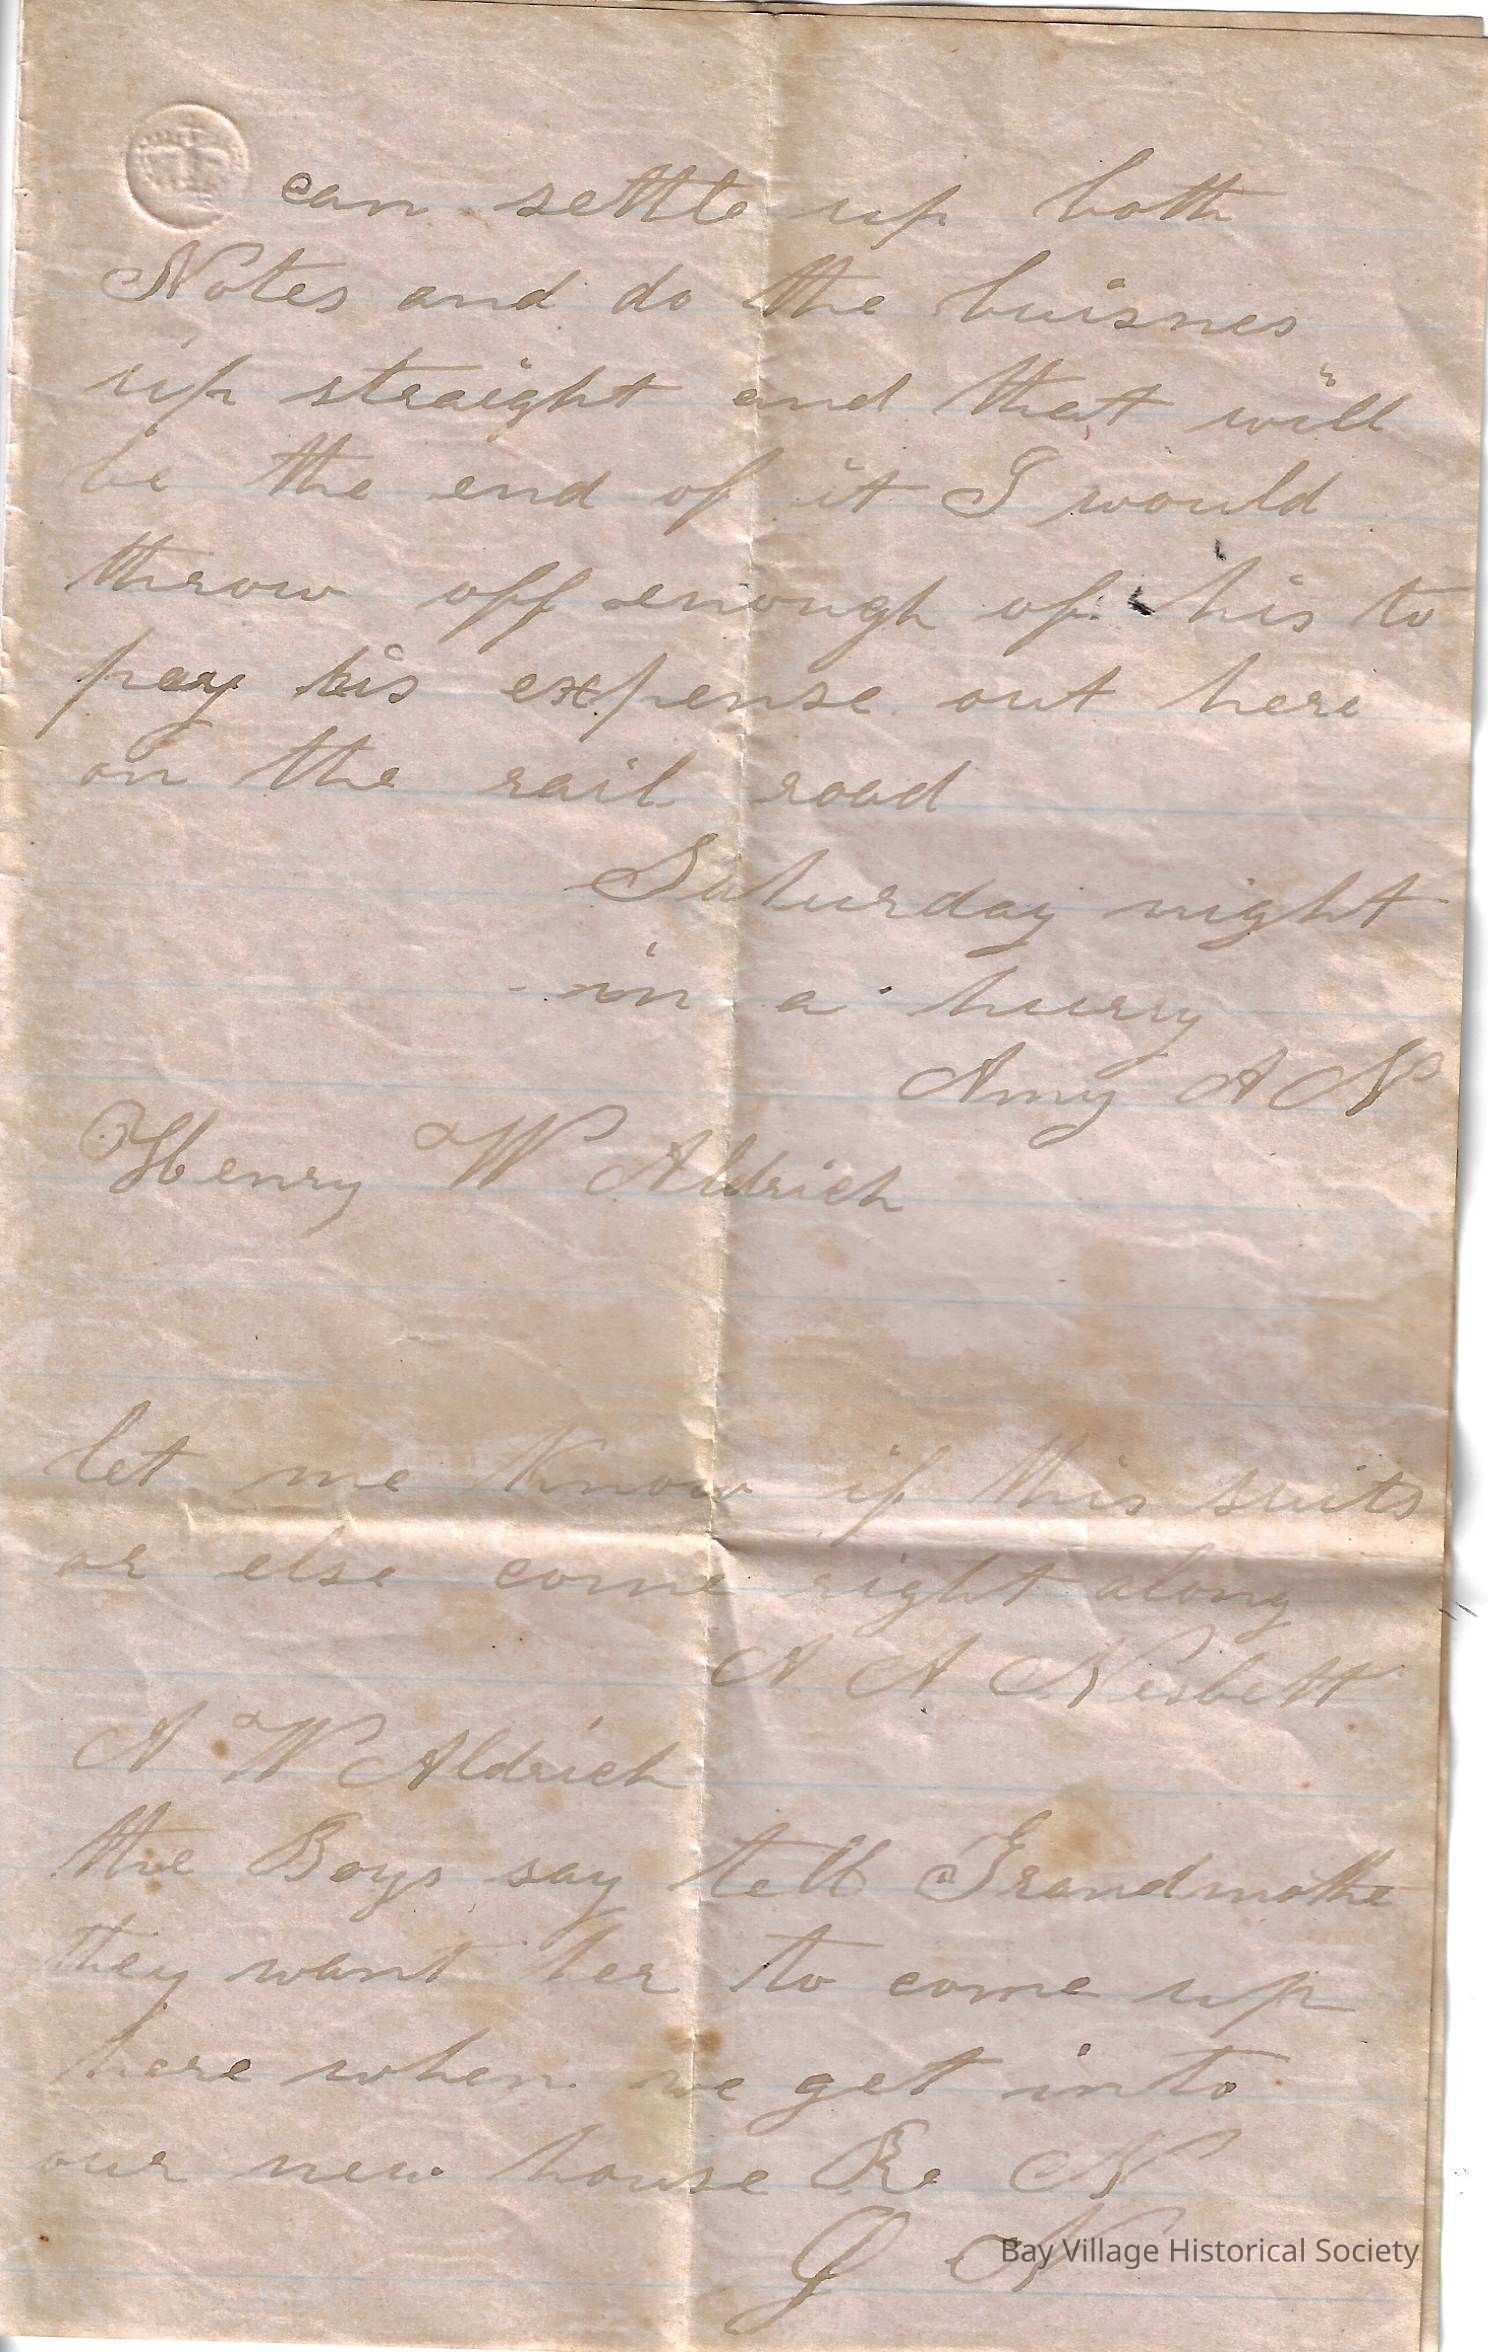 can settle up both
Notes and do the buisnes
up straight and that will
be the end of it I would
throw off enough of his to
pay his expense out here
on the rail road
Saturday night
in a hurry
Amy A N
Henry W Aldrich
let me know if this suits
or else come right along
A A Nesbett
A W Aldrich
the Boys say tell Grandmothe
they want her to come up
here when we get into
our new house Ro N
N
Bay Village Historical Society